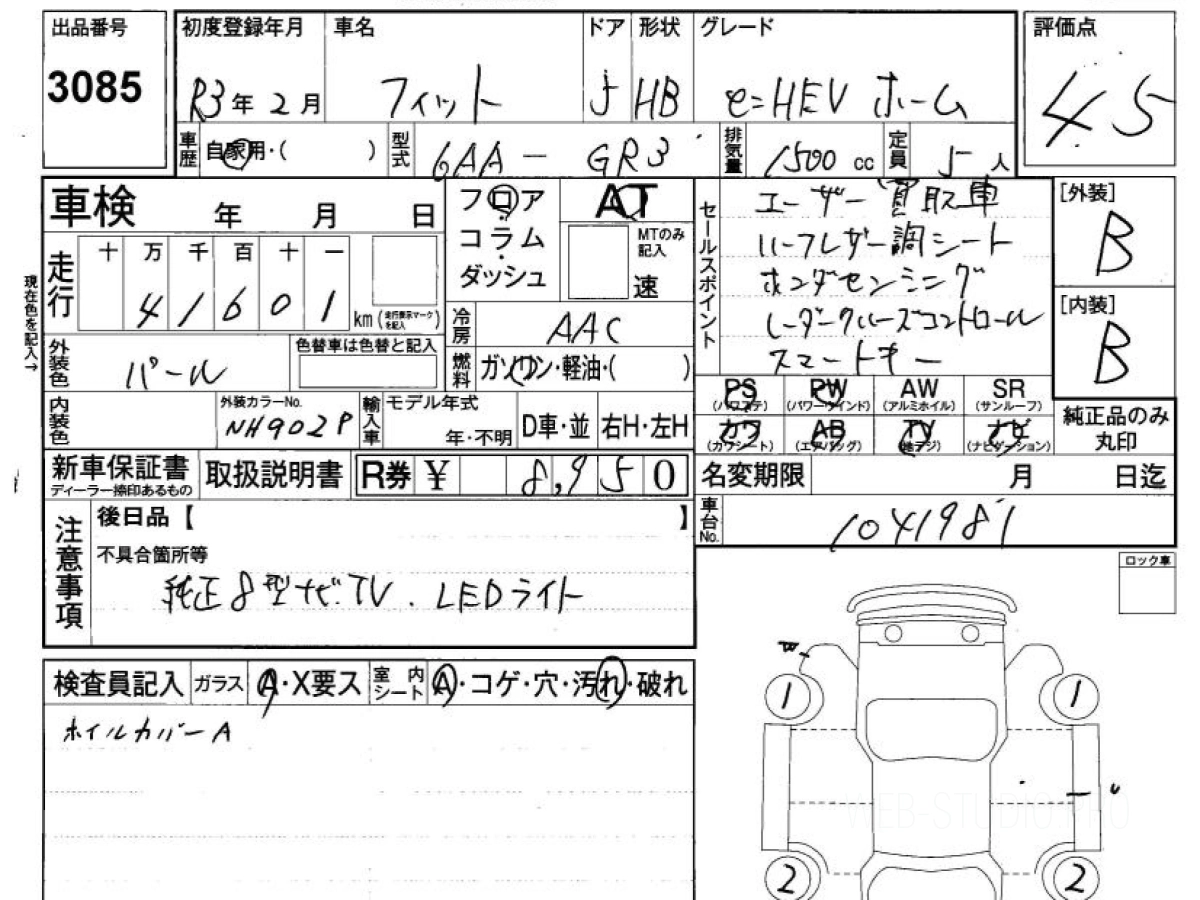 出品番号 初度登録年月 車名 ドア 形状 グレード 評価点
3085 R3年 2月 フィット 5 HB e:HEV ホーム 4.5
車歴 自家用・( ) 型式 6AA - GR3 排気量 1500 cc 定員 5人
車検 年 月 日
走行 十 万 千 百 十 一
4 1 6 0 1 km (走行表示マークを記入)
現在色を記入→
フロア AT
コラム MTのみ記入
ダッシュ 速
セールスポイント
ユーザー買取車
ハーフレザー調シート
ホンダセンシング
レーダークルーズコントロール
スマートキー
[外装]
B
[内装]
B
冷房 AAC
燃料 ガソリン・軽油・( )
外装色 パール 色替車は色替と記入
内装色 外装カラーNo. NH902P 輸入車 モデル年式 年・不明 D車・並 右H・左H
PS (パワステ) PW (パワーウインド) AW (アルミホイル) SR (サンルーフ)
カワ (カワシート) AB (エアバッグ) TV (地デジ) ナビ (ナビゲーション)
純正品のみ丸印
新車保証書 ディーラー捺印あるもの 取扱説明書 R券 ¥ 8,950
名変期限 月 日迄
車台No. 1041981
注意事項
後日品【 】
不具合箇所等
純正8型ナビ.TV. LEDライト
ロック車
検査員記入 ガラス A・X要ス 室内シート A・コゲ・穴・汚れ・破れ
ホイルカバーA
1 1
WEB-STUDIO.PRO
2 2